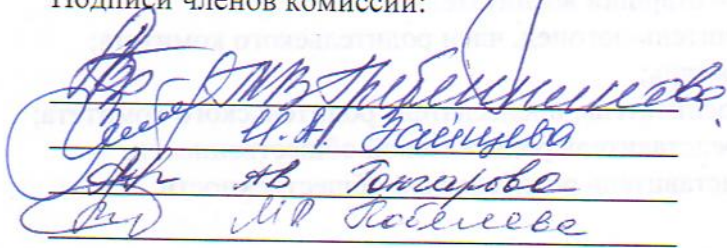 Подписи членов комиссии:
Т.В. Гребенникова
И.Н. Заинцева
А.В. Гончарова
М.Р. Кобелева